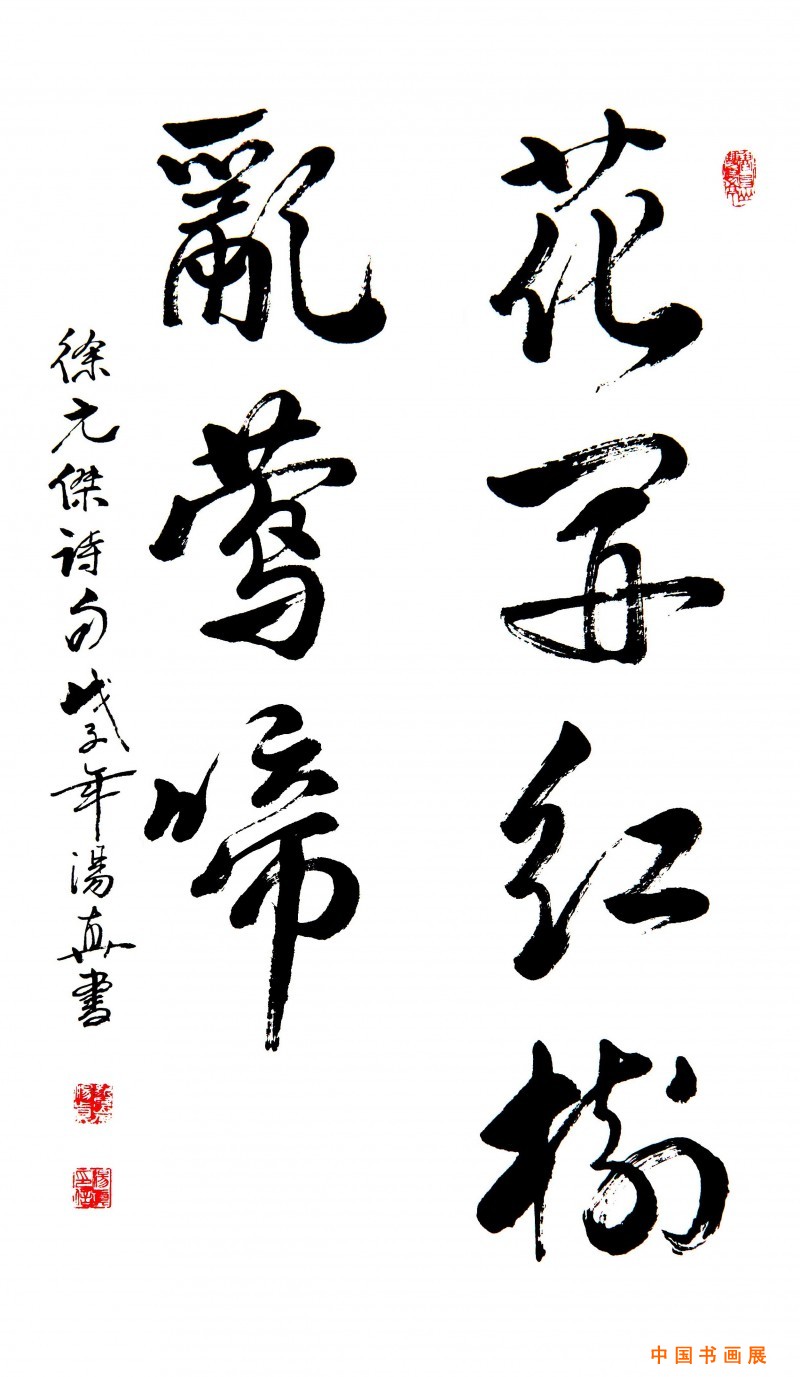 花開紅樹
亂鶯啼
徐元傑詩句戊子年湯真書
中国书画展